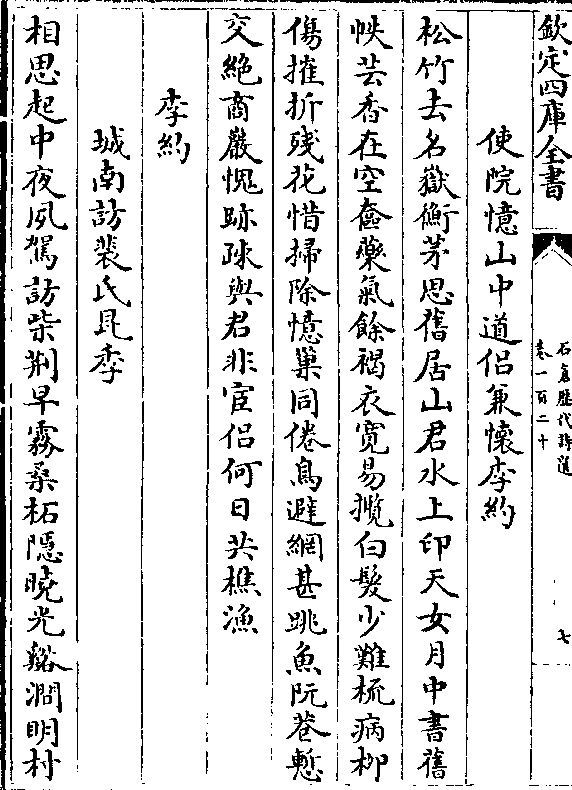 欽定四庫全書
石倉歷代詩選
卷一百二十
七
使院憶山中道侶兼懷李約
松竹去名嶽衡茅思舊居山君水上印天女月中書舊
帙芸香在空奩藥氣餘褐衣寛易攬白髮少難梳病柳
傷摧折殘花惜掃除憶巢同倦鳥避網甚跳魚阮巷慙
交絶商巖愧跡疎與君非宦侶何日共樵漁
李約
城南訪裴氏昆季
相思起中夜夙駕訪柴荆早霧桑柘隠曉光谿澗明村